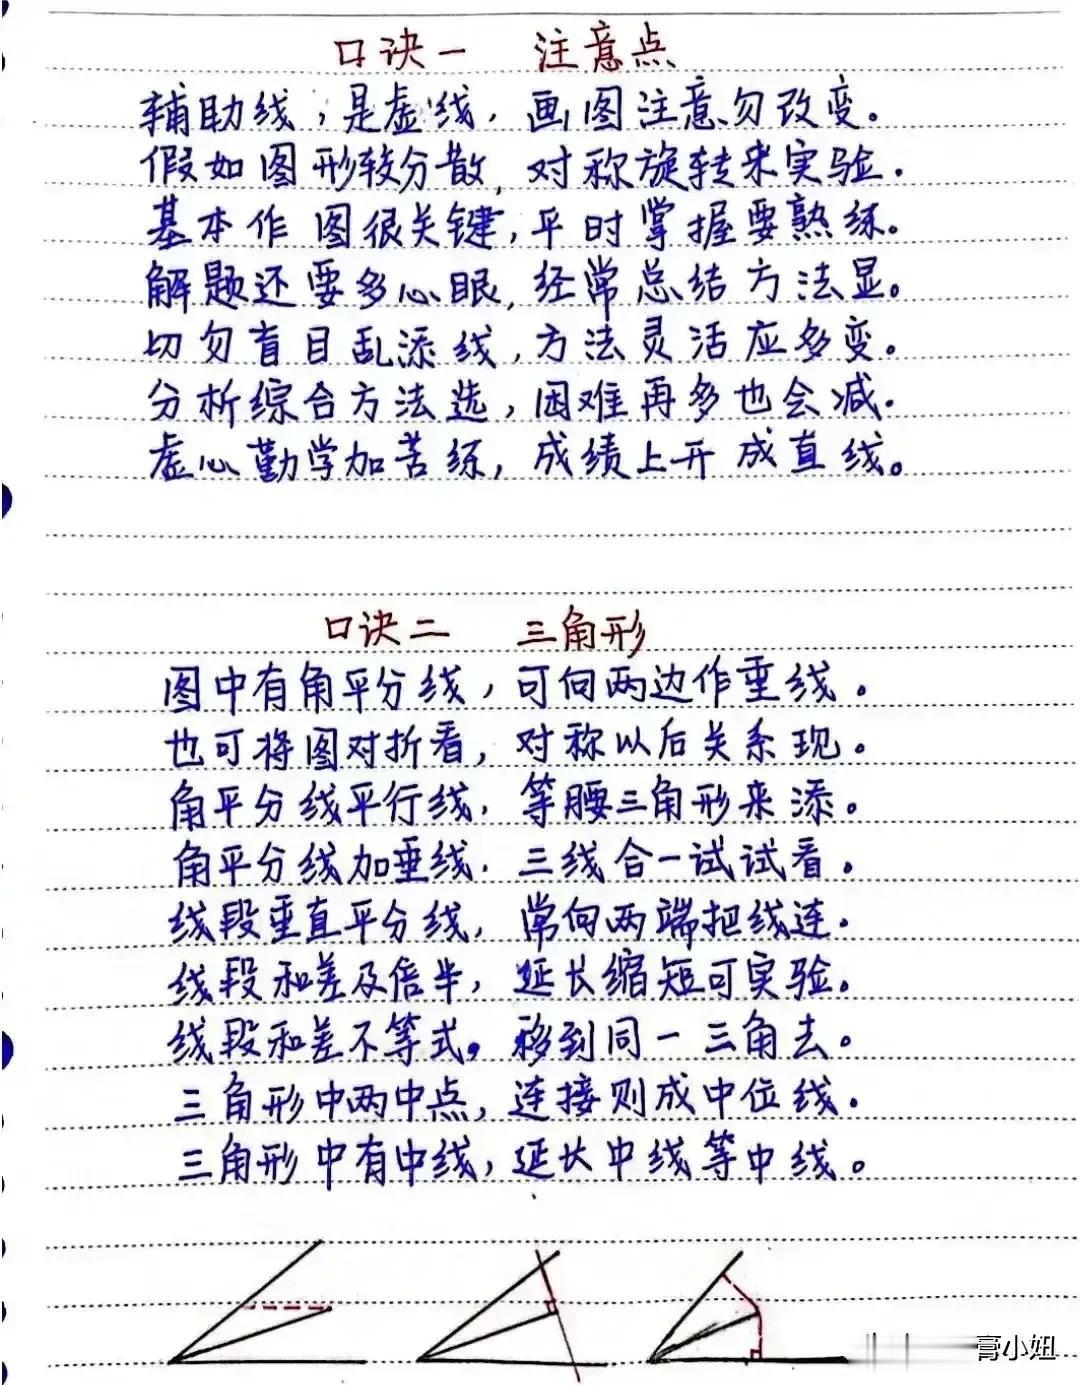 口诀一 注意点
辅助线，是虚线，画图注意勿改变。
假如图形较分散，对称旋转来实验．
基本作图很关键，平时掌握要熟练。
解题还要多心眼，经常总结方法显。
切勿盲目乱添线，方法灵活应多变。
分析综合方法选，困难再多也会减．
虚心勤学加苦练，成绩上升成直线。
口诀二 三角形
图中有角平分线，可向两边作垂线。
也可将图对折看，对称以后关系现。
角平分线平行线，等腰三角形来添。
角平分线加垂线．三线合一试试看。
线段垂直平分线，常向两端把线连．
线段和差及倍半，延长缩短可实验。
线段和差不等式。移到同一三角去。
三角形中两中点，连接则成中位线．
三角形中有中线，延长中线等中线。
膏小妞